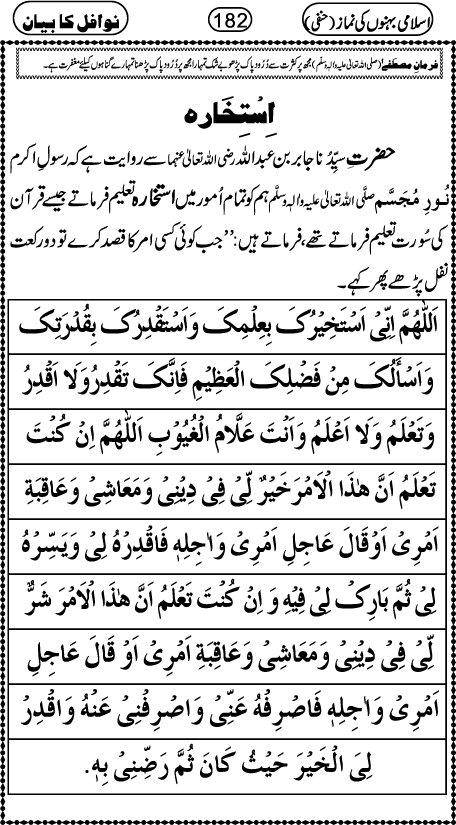 اسلامی بہنوں کی نماز (حنفی) 182 نوافل کا بیان
فرمانِ مصطفےٰ (صلی اللہ تعالیٰ علیہ والہٖ وسلّم) مجھ پر کثرت سے دُرُود پاک پڑھو بے شک تمہارا مجھ پر دُرُود پاک پڑھنا تمہارے گناہوں کیلئے مغفرت ہے۔
اِسْتِخارہ
حضرتِ سیِّدُنا جابر بن عبد اللہ رضی اللہ تعالیٰ عنہما سے روایت ہے کہ رسولِ اکرم
نُورِ مُجَسَّم صلَّی اللہ تعالیٰ علیہ والہٖ وسلَّم ہم کو تمام اُمور میں استخارہ تعلیم فرماتے جیسے قرآن
کی سُورت تعلیم فرماتے تھے، فرماتے ہیں: ’’جب کوئی کسی امر کا قصد کرے تو دو رکعت
نفل پڑھے پھر کہے۔
اَللّٰهُمَّ اِنِّیْ اَسْتَخِیْرُکَ بِعِلْمِکَ وَاَسْتَقْدِرُکَ بِقُدْرَتِکَ
وَاَسْأَلُکَ مِنْ فَضْلِکَ الْعَظِیْمِ فَاِنَّکَ تَقْدِرُ وَلَا اَقْدِرُ
وَتَعْلَمُ وَلَا اَعْلَمُ وَاَنْتَ عَلَّامُ الْغُیُوْبِ اَللّٰهُمَّ اِنْ کُنْتَ
تَعْلَمُ اَنَّ هٰذَا الْاَمْرَ خَیْرٌ لِّیْ فِیْ دِیْنِیْ وَمَعَاشِیْ وَعَاقِبَةِ
اَمْرِیْ اَوْ قَالَ عَاجِلِ اَمْرِیْ وَاٰجِلِهٖ فَاقْدِرْهُ لِیْ وَیَسِّرْهُ
لِیْ ثُمَّ بَارِکْ لِیْ فِیْهِ وَ اِنْ کُنْتَ تَعْلَمُ اَنَّ هٰذَا الْاَمْرَ شَرٌّ
لِّیْ فِیْ دِیْنِیْ وَمَعَاشِیْ وَعَاقِبَةِ اَمْرِیْ اَوْ قَالَ عَاجِلِ
اَمْرِیْ وَاٰجِلِهٖ فَاصْرِفْهُ عَنِّیْ وَاصْرِفْنِیْ عَنْهُ وَاقْدِرْ
لِیَ الْخَیْرَ حَیْثُ کَانَ ثُمَّ رَضِّنِیْ بِهٖ.